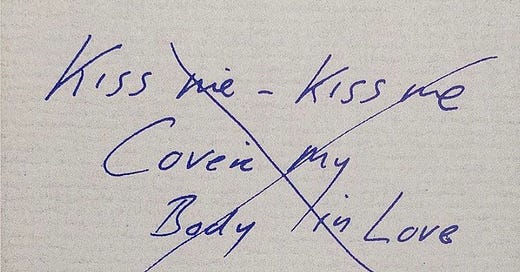 Kiss me - Kiss me
Cover my
Body in Love